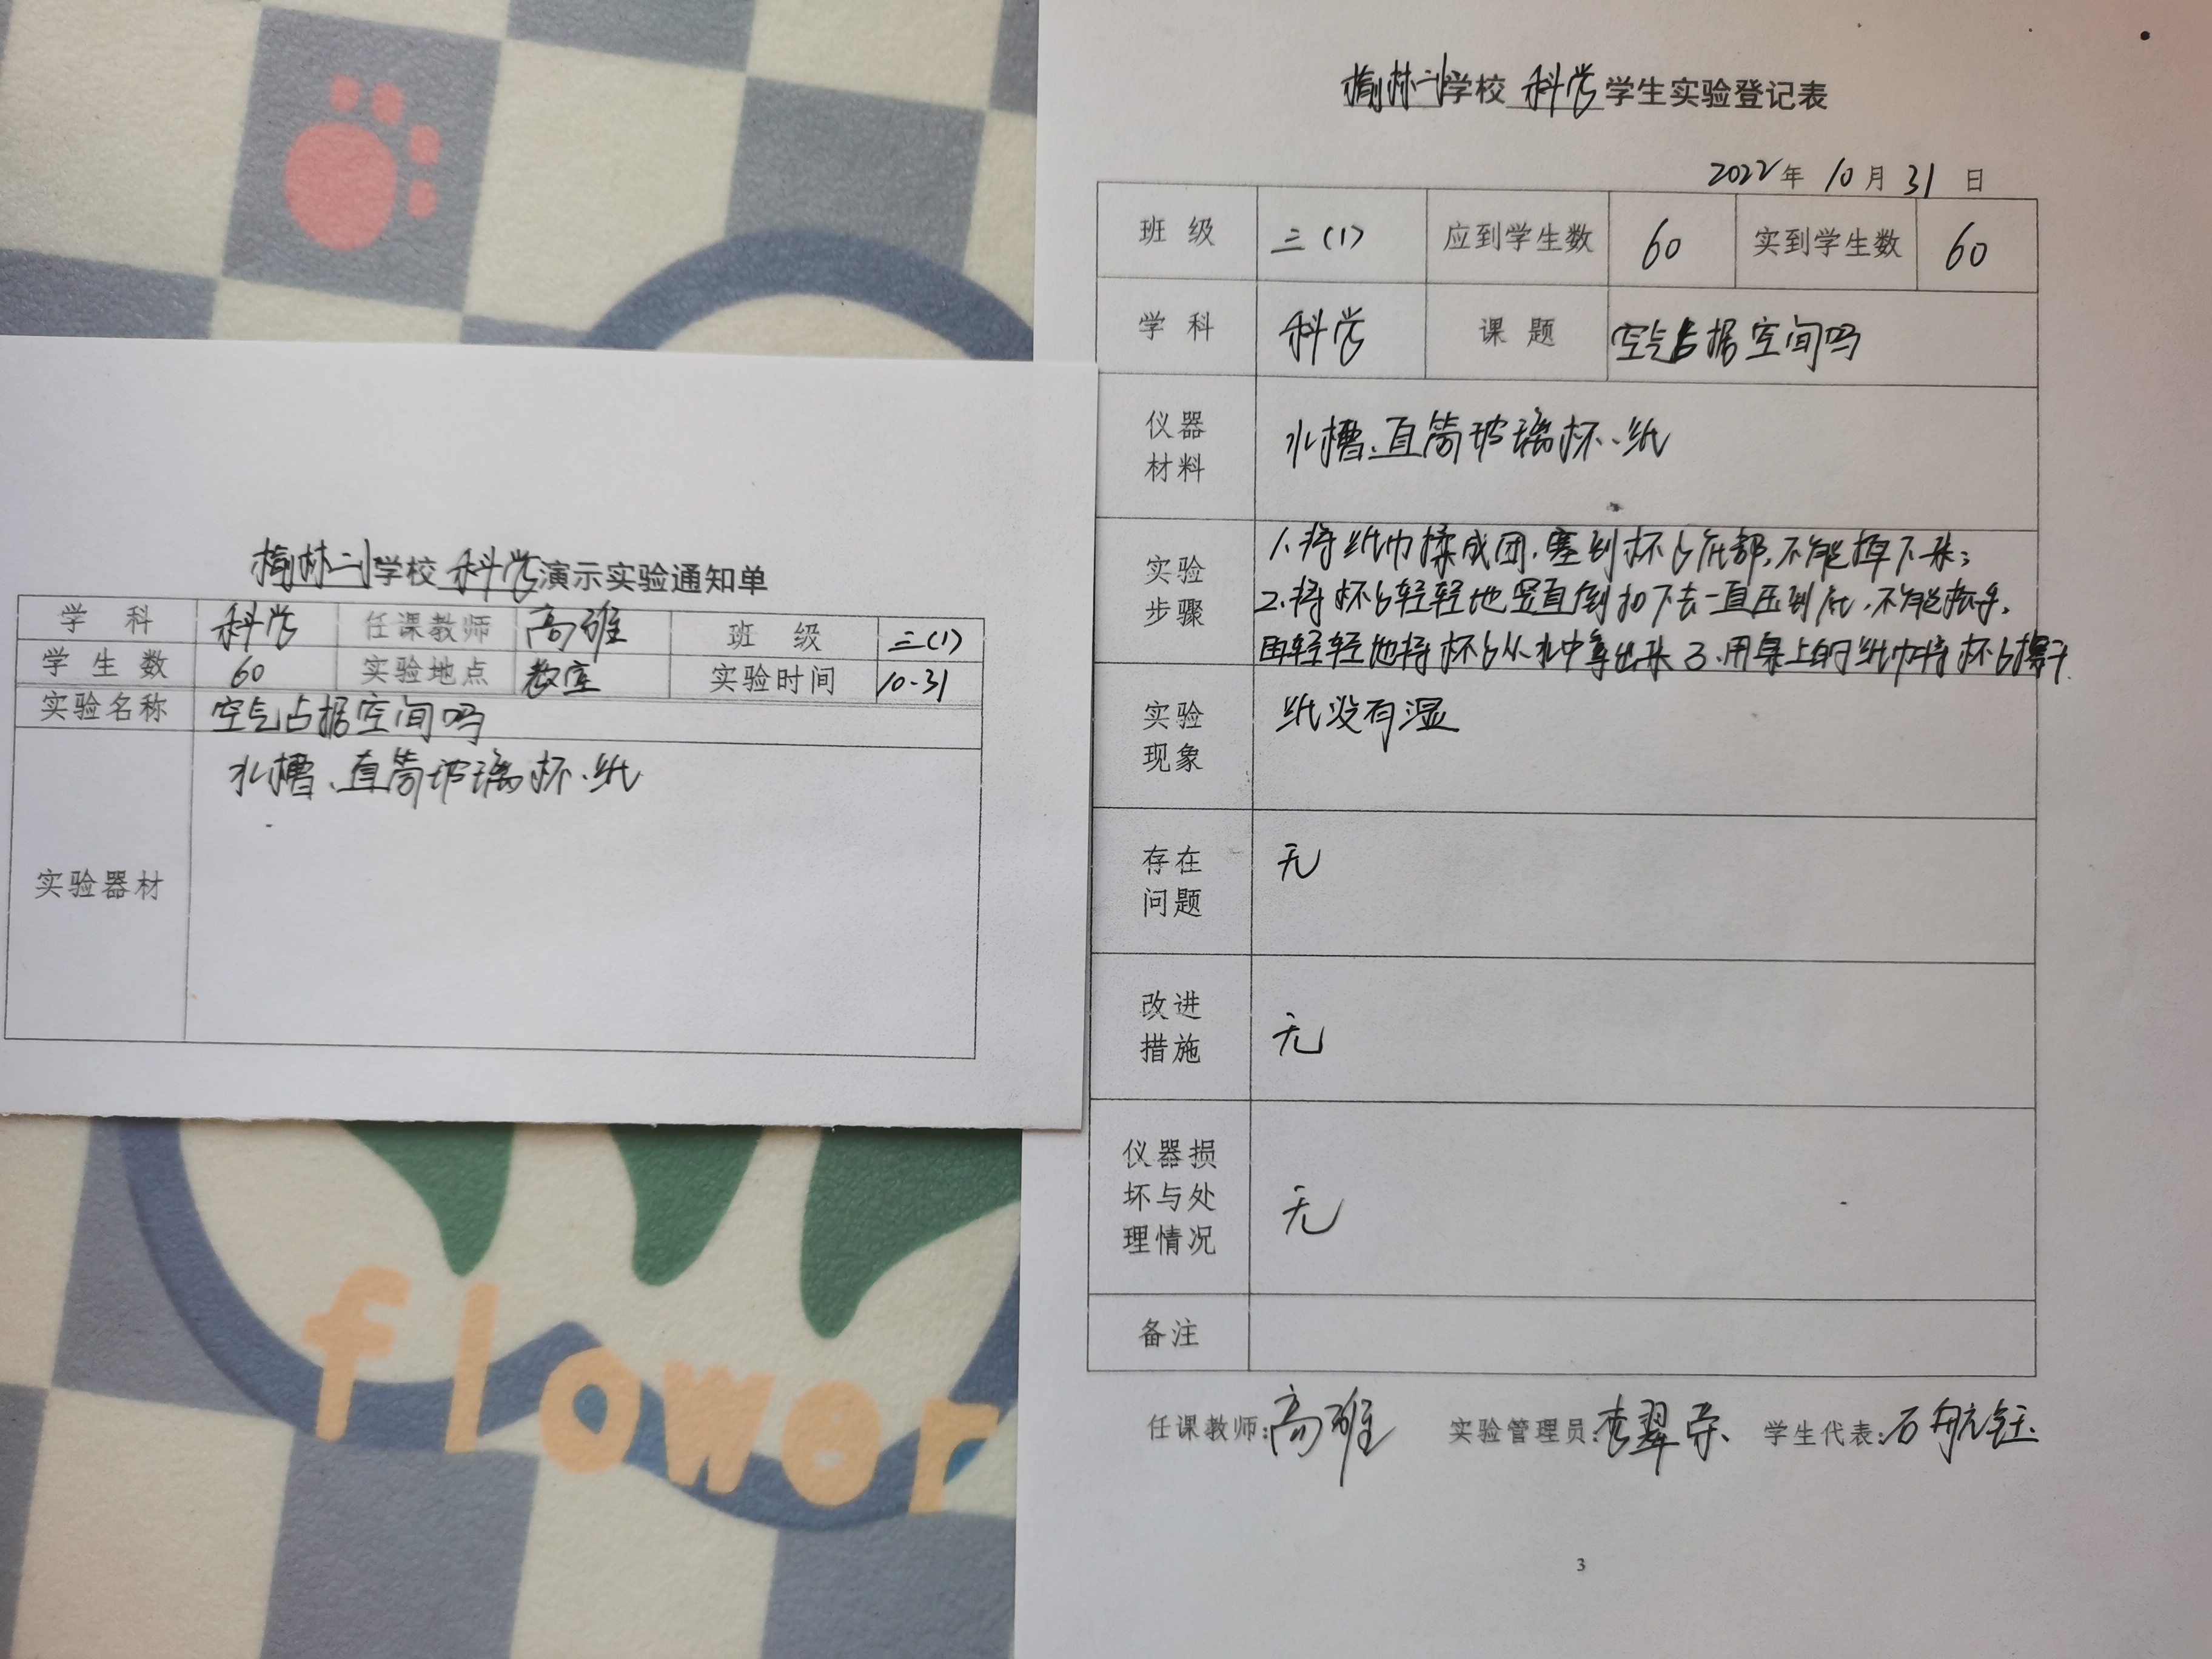 榆林二小学校 科学 演示实验通知单
学 科 科学 任课教师 高雅 班 级 三(1)
学 生 数 60 实验地点 教室 实验时间 10-31
实验名称 空气占据空间吗
实验器材 水槽、直筒玻璃杯、纸
flower
榆林二小学校 科学 学生实验登记表
2022年 10月 31 日
班 级 三(1) 应到学生数 60 实到学生数 60
学 科 科学 课 题 空气占据空间吗
仪器
材料
水槽、直筒玻璃杯、纸
实验
步骤
1、将纸巾揉成团,塞到杯子底部,不能掉下来;
2、将杯子轻轻地竖直倒扣下去一直压到底,不能松手,
再轻轻地将杯子从水中拿出来 3、用桌上的纸巾将杯子擦干.
实验
现象
纸没有湿
存在
问题
无
改进
措施
无
仪器损
坏与处
理情况
无
备注
任课教师:高雅 实验管理员:李翠 学生代表:石航钰
3